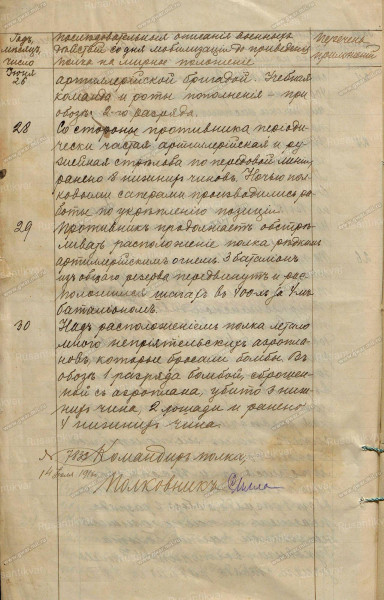 Годъ, мѣсяцъ, число
Последовательное описание военныхъ
действий со дня мобилизации до приведения
полка на мирное положение
Перечень
приложений
Июня
26
артиллерийской бригадой. Учебная
команда и роты пополнения – при
обозѣ 2-го разряда.
28
Со стороны противника периоди-
чески частая артиллерийская и ру-
жейная стрельба по передовой линии,
ранено 8 нижнихъ чиновъ. Ночью пол-
ковыми саперами производились ра-
боты по укрѣплению позиции.
29
Противникъ продолжаетъ обстрѣ-
ливать расположение полка рѣдкимъ
артиллерийскимъ огнемъ. 3 баталионъ
изъ общаго резерва передвинутъ и рас-
положился шагахъ въ 400-хъ за 4-мъ
баталиономъ.
30
Надъ расположениемъ полка летало
много неприятельскихъ аэропла-
новъ, которые бросали бомбы. Въ
обозѣ 1 разряда бомбой, сброшен-
ной съ аэроплана, убито 3 ниж-
нихъ чина, 2 лошади и ранено
4 нижнихъ чина.
№
Командиръ полка,
14
Полковникъ